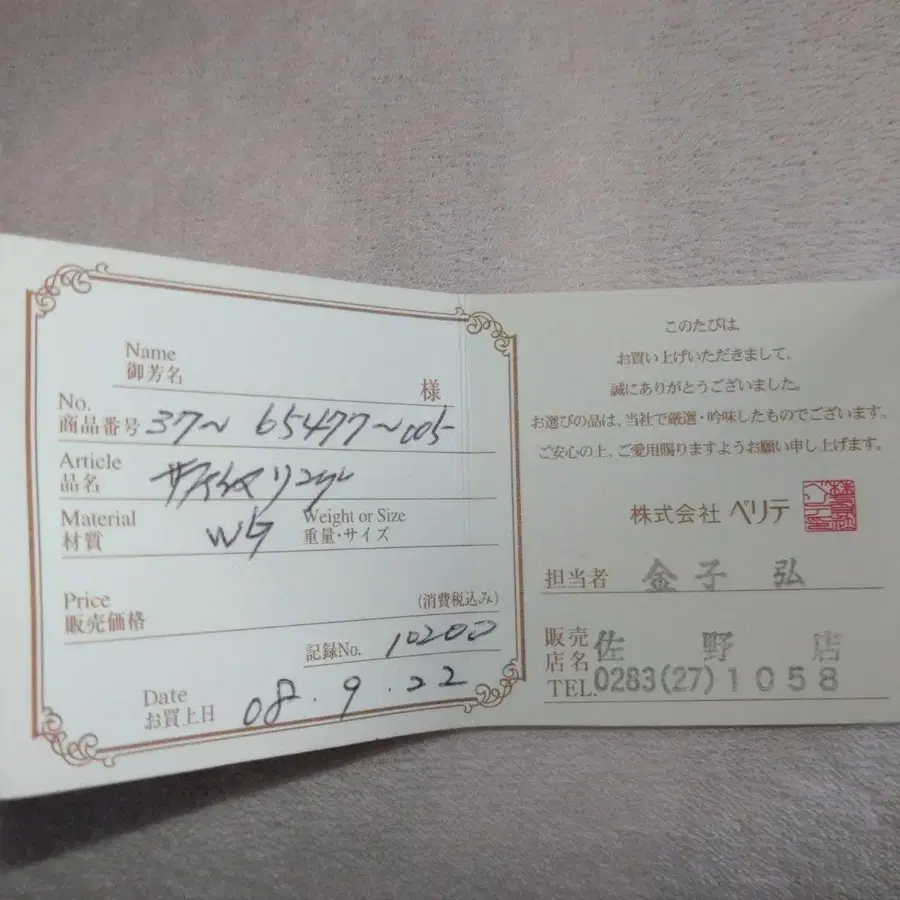 Name
御芳名
様
No.
商品番号 37～65477～005
Article
品名 リング
Material
材質 WG
Weight or Size
重量・サイズ
Price
販売価格 (消費税込み)
記録No. 10200
Date
お買上日 08.9.22
このたびは、
お買い上げいただきまして、
誠にありがとうございました。
お選びの品は、当社で厳選・吟味したものでございます。
ご安心の上、ご愛用賜りますようお願い申し上げます。
株式会社 ベリテ
担当者 金子 弘
販売
店名 佐野店
TEL. 0283(27)1058